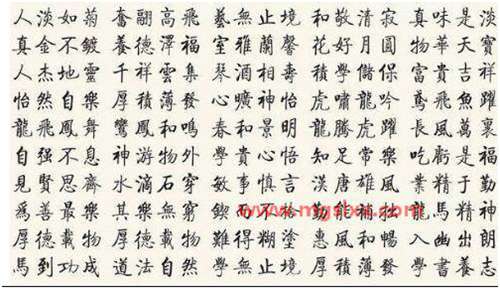 人淡如菊 奮翮高飛 藝無止境 和敬清寂 真味是淡
真金不鍍 養德澤福 室雅蘭馨 花好月圓 物華天寶
人杰地靈 千祥雲集 琴 相壽 積學儲保 富貴吉祥
怡然自樂 厚積薄發 心曠神怡 虎嘯龍吟 鳶飛魚躍
龍飛鳳舞 鸞鳳和鳴 春和景明 龍騰虎躍 長風萬裏
自強不息 神游物外 學貴心悟 知足常樂 吃虧是福
見賢思齊 水滴石穿 敏事慎言 漢唐雄風 業精于勤
為善最樂 其樂無窮 鍥而不 龍馬精神
厚德載物 厚德載物 難得糊塗 惠風和暢 入幽出朗
馬到功成 道法自然 學無止境 厚積薄發 學書養志